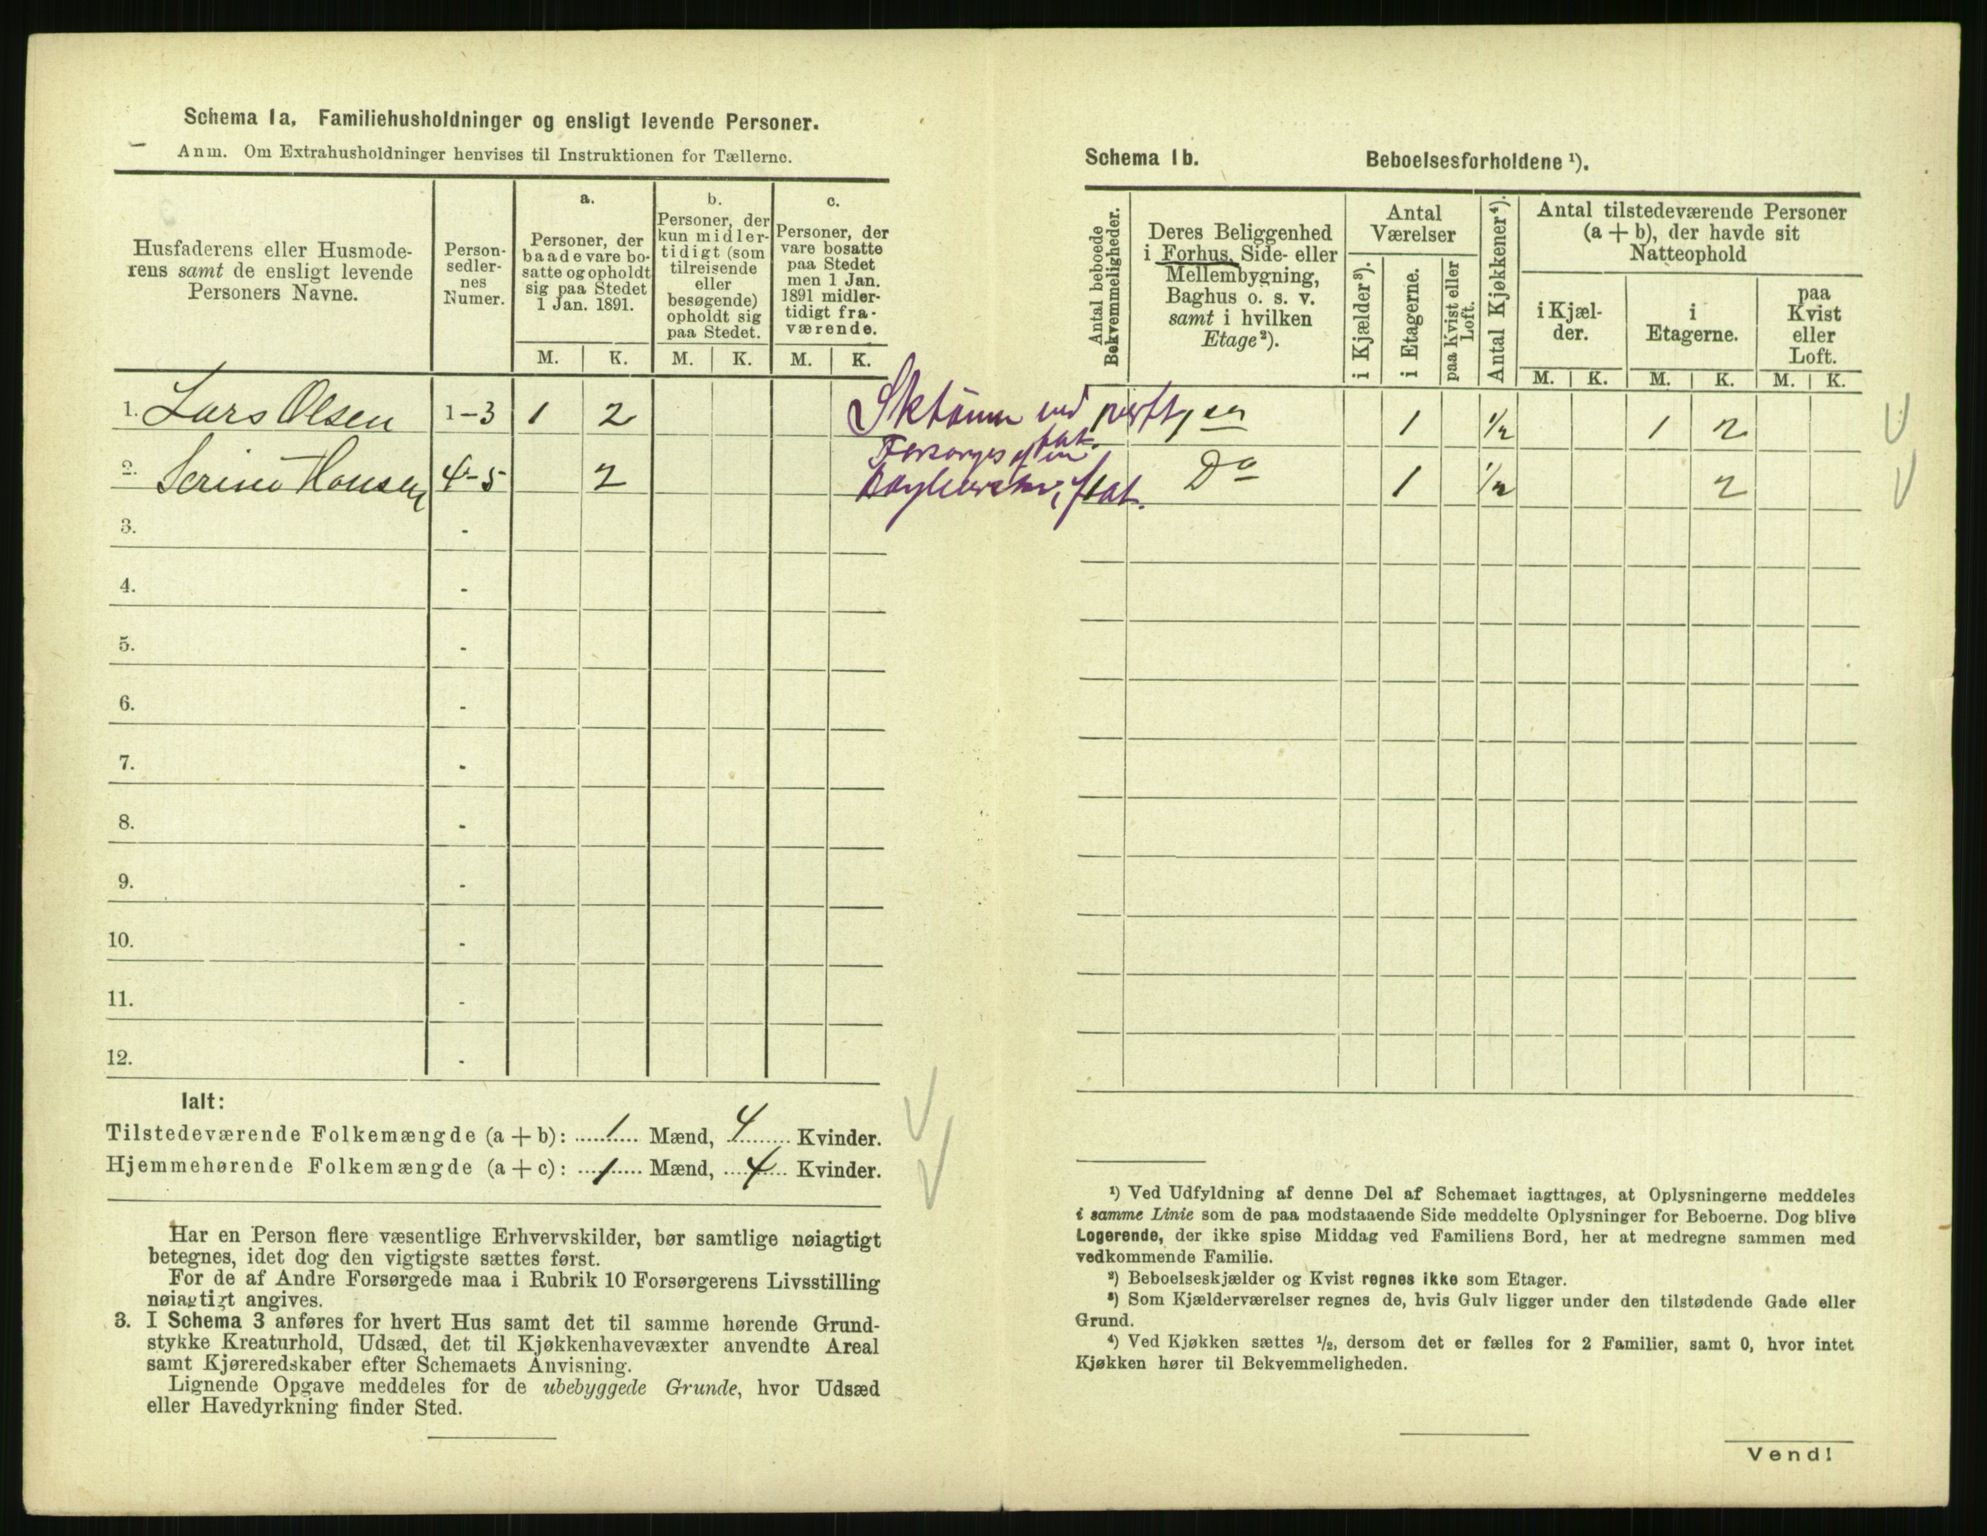 Schema 1a. Familiehusholdninger og ensligt levende Personer.
Anm. Om Extrahusholdninger henvises til Instruktionen for Tællerne.
Husfaderens eller Husmode-
rens samt de ensligt levende
Personers Navne.
Person-
sedler-
nes
Numer.
a.
Personer, der
baade vare bo-
satte og opholdt
sig paa Stedet
1 Jan. 1891.
b.
Personer, der
kun midler-
tidigt (som
tilreisende
eller
besøgende)
opholdt sig
paa Stedet.
c.
Personer, der
vare bosatte
paa Stedet
men 1 Jan.
1891 midler-
tidigt fra-
værende.
M. K. M. K. M. K.
1. Lars Olsen 1-3 1 2
2. Serine Hansen 4-5 2
3. -
4. -
5. -
6. -
7. -
8. -
9. -
10. -
11. -
12. -
Ialt:
Tilstedeværende Folkemængde (a + b): 1 Mænd, 4 Kvinder.
Hjemmehørende Folkemængde (a + c): 1 Mænd, 4 Kvinder.
Har en Person flere væsentlige Erhvervskilder, bør samtlige nøiagtigt
betegnes, idet dog den vigtigste sættes først.
For de af Andre Forsørgede maa i Rubrik 10 Forsørgerens Livsstilling
nøiagtigt angives.
3. I Schema 3 anføres for hvert Hus samt det til samme hørende Grund-
stykke Kreaturhold, Udsæd, det til Kjøkkenhavevæxter anvendte Areal
samt Kjøreredskaber efter Schemaets Anvisning.
Lignende Opgave meddeles for de ubebyggede Grunde, hvor Udsæd
eller Havedyrkning finder Sted.
Schema 1b. Beboelsesforholdene ¹).
Antal beboede
Bekvemmeligheder.
Deres Beliggenhed
i Forhus, Side- eller
Mellembygning,
Baghus o. s. v.
samt i hvilken
Etage²).
Antal
Værelser
i Kjælder³).
i Etagerne.
paa Kvist eller
Loft.
Antal Kjøkkener⁴).
Antal tilstedeværende Personer
(a + b), der havde sit
Natteophold
i Kjæl-
der.
i
Etagerne.
paa
Kvist
eller
Loft.
M. K. M. K. M. K.
1 ½ 1 2
Do 1 ½ 2
¹) Ved Udfyldning af denne Del af Schemaet iagttages, at Oplysningerne meddeles
i samme Linie som de paa modstaaende Side meddelte Oplysninger for Beboerne. Dog blive
Logerende, der ikke spise Middag ved Familiens Bord, her at medregne sammen med
vedkommende Familie.
²) Beboelseskjælder og Kvist regnes ikke som Etager.
³) Som Kjælderværelser regnes de, hvis Gulv ligger under den tilstødende Gade eller
Grund.
⁴) Ved Kjøkken sættes ½, dersom det er fælles for 2 Familier, samt 0, hvor intet
Kjøkken hører til Bekvemmeligheden.
Vend!